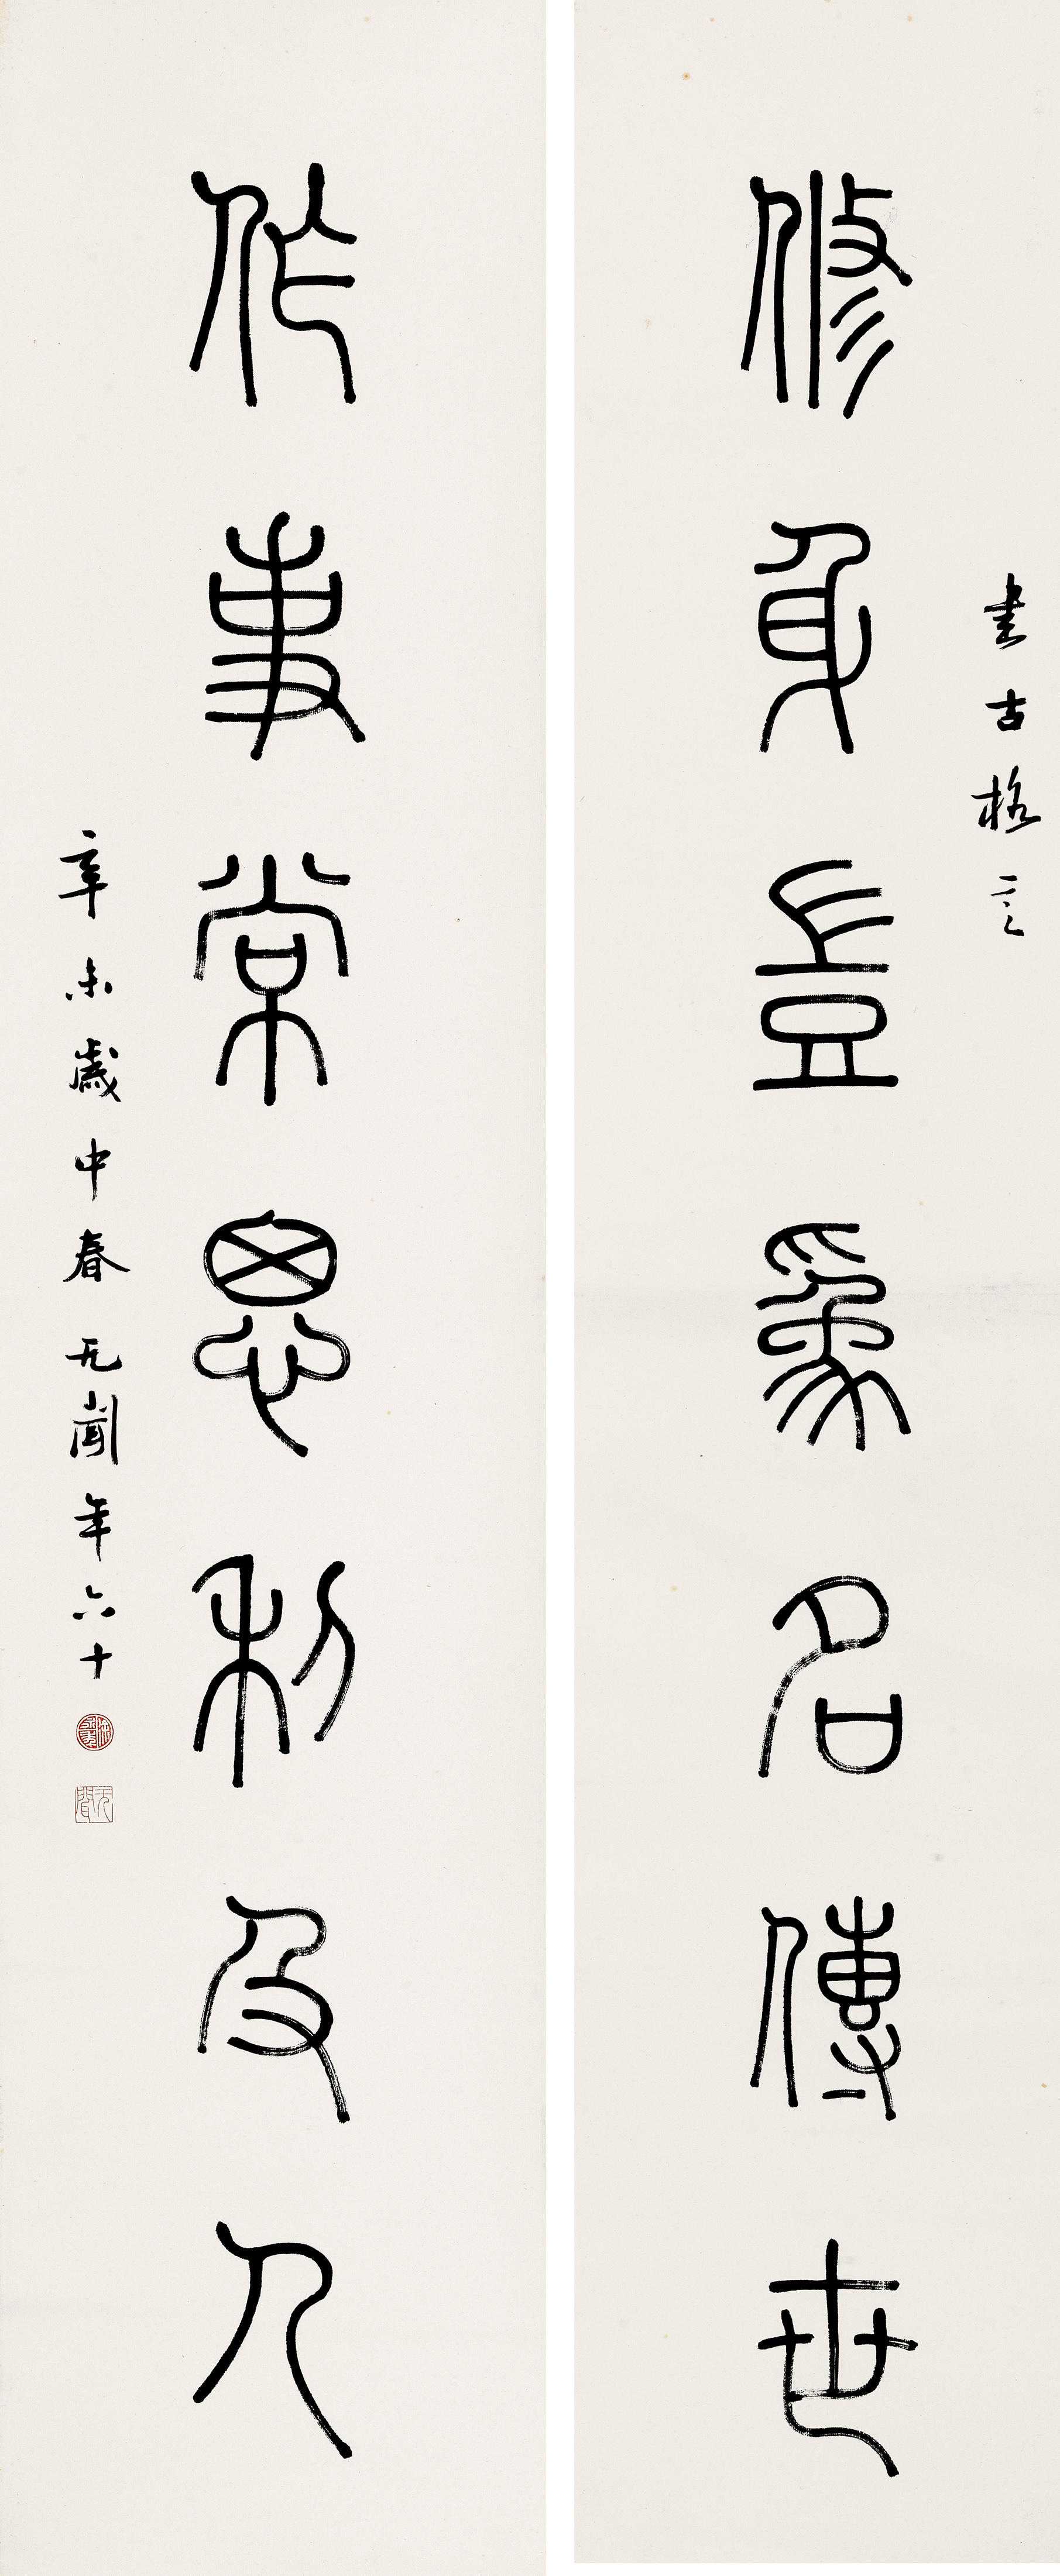 書古格言
修身豈為名傳世
作事常思利及人
辛未歲中春无聞年六十